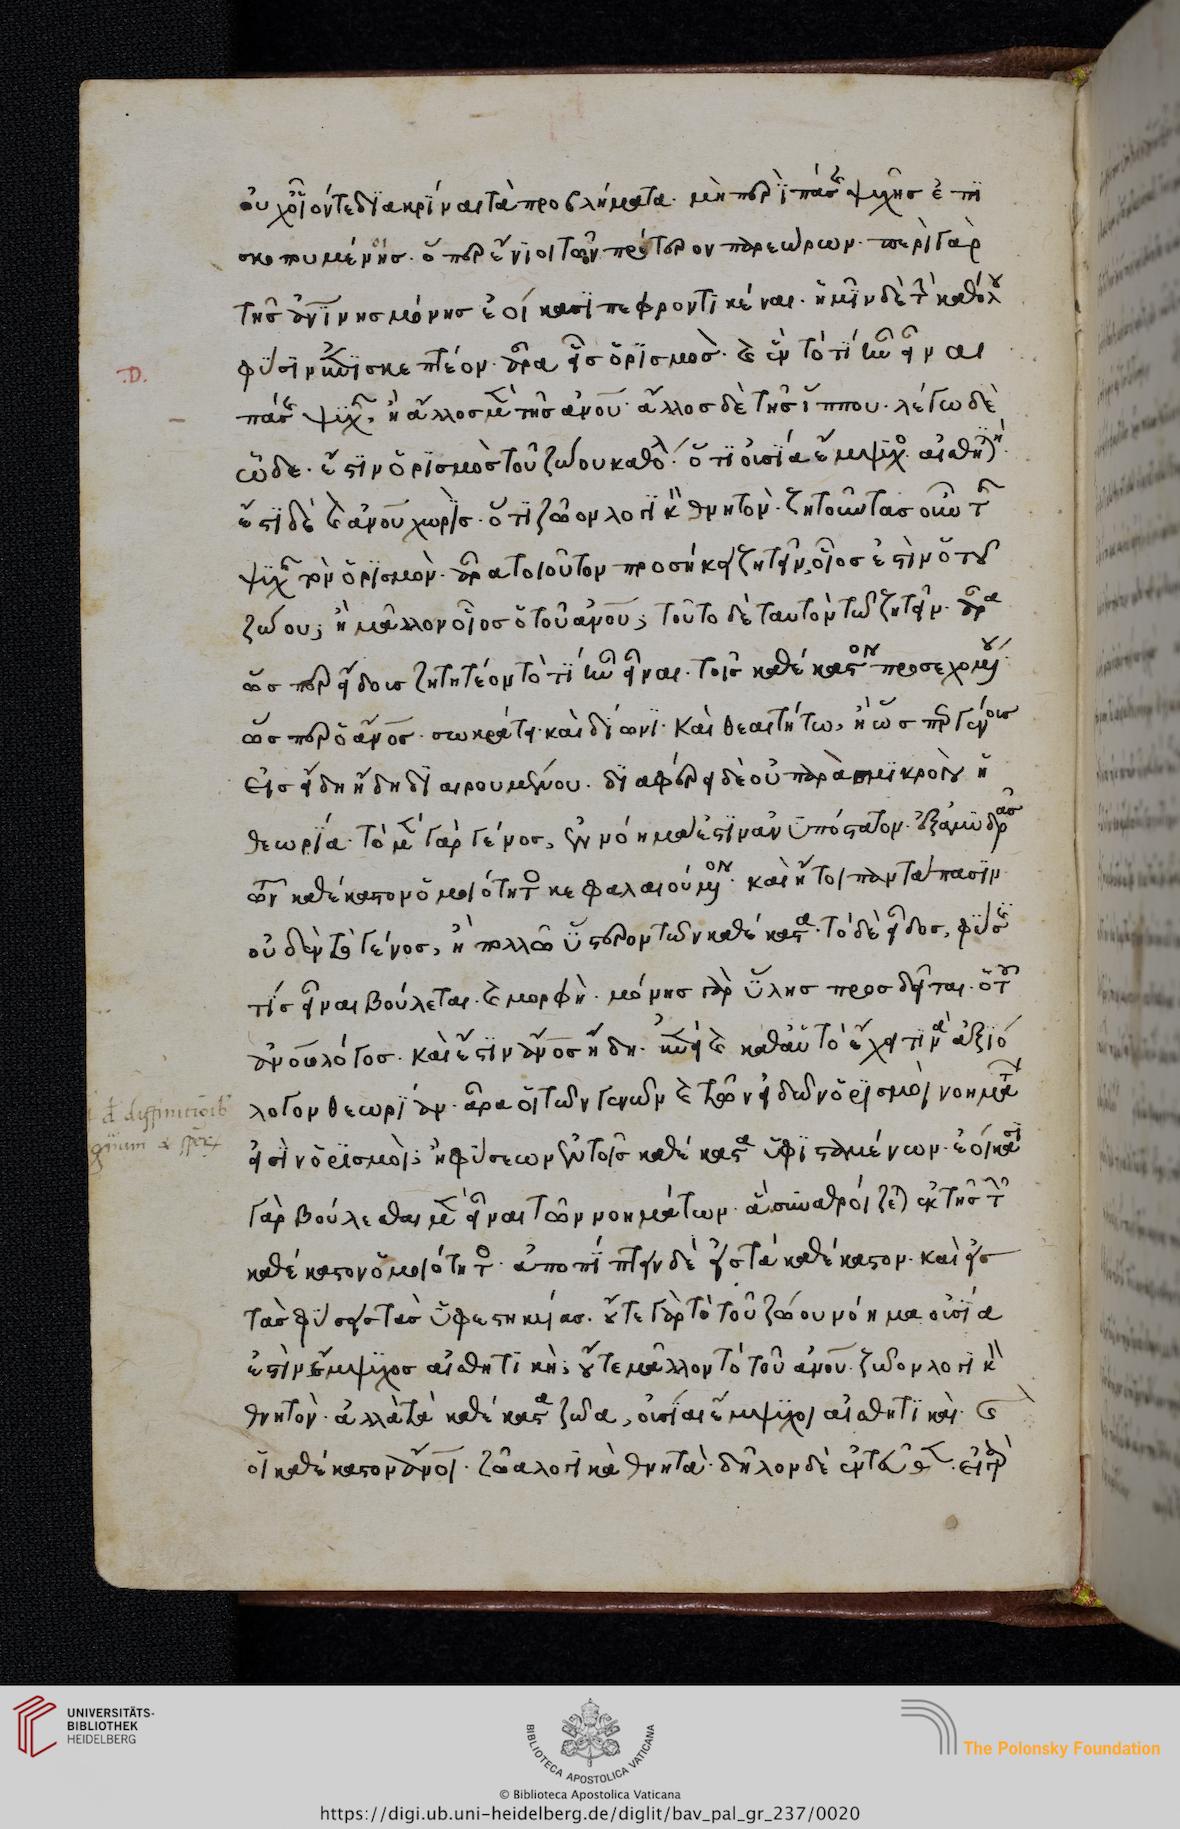 οὐχ οἷόντε διακρίναι τὰ προβλήματα· μὴ περὶ πάσης ψυχῆς ἐπι
σκοπουμένης· ὅπερ ἔνιοι τῶν πρότερον παρεώρων· περὶ γὰρ
τῆς ἀνίνης μόνης ἐοίκασι πεφροντικέναι· ἡμῖν δὲ τὴν καθόλου
φύσιν ἐπισκεπτέον· ἆρα εἷς ὁρισμὸς· καὶ ἓν τὸ τί ἦν εἶναι
πάσης ψυχῆς, ἢ ἄλλος μὲν τῆς ἀνου· ἄλλος δὲ τῆς ἵππου· λέγω δὲ
ὧδε· ἔστιν ὁρισμὸς τοῦ ζώου καθόλου· ὅτι οὐσία ἔμψυχος αἰσθητικὴ·
ἔστι δὲ καὶ ἀνου χωρὶς· ὅτι ζῶον λογικὸν θνητὸν· ζητοῦντας οὖν τῆς
ψυχῆς τὸν ὁρισμὸν· ἆρα τοιοῦτον προσήκει ζητεῖν, οἷος ἐστὶν ὁ τοῦ
ζώου; ἢ μᾶλλον οἷος ὁ τοῦ ἀνου; τοῦτο δὲ ταυτὸν τῷ ζητεῖν· ἆρα
ὥσπερ εἴδους ζητητέον τὸ τί ἦν εἶναι· τοῖς καθέκαστον προσεχοῦς·
ὥσπερ ὁ ἄνος· σωκράτει καὶ δίωνι· καὶ θεαιτήτω, ἢ ὥσπερ γένους
εἰς εἴδη ἤδη διαιρουμένου· διαφέρει δὲ οὐ παρὰ μικρὸν ἡ
θεωρία· τὸ μὲν γὰρ γένος, ἐννόημα ἐστὶν ἀνυπόστατον· ἐξ ἀμυδρᾶς
τῶν καθέκαστον ὁμοιότητος κεφαλαιούμενον· καὶ ἤτοι παντάπασιν
οὐδὲν τὸ γένος, ἢ πολλῶ ὕστερον τῶν καθέκαστα· τὸ δὲ εἶδος, φύσις
τίς εἶναι βούλεται· καὶ μορφὴ· μόνης γὰρ ὕλης προσδεῖται· ὁ τοῦ
ἀνου λόγος· καὶ ἔστιν ἄνος ἤδη· ἐπεὶ καὶ καθ' αὑτὸ ἔχει τινὰ ἀξιό
λογον θεωρίαν· ἆρα οἱ τῶν γενῶν καὶ τῶν εἰδῶν ὁρισμοὶ νοημάτων
εἰσὶν ὁρισμοὶ; ἢ φύσεων ἐν τοῖς καθέκαστα ὑφισταμένων· ἐοίκασι
γὰρ βούλεσθαι μὲν εἶναι τῶν νοημάτων· ἃ συναθροίζεται ἐκ τῆς τῶν
καθέκαστον ὁμοιότητος· ἀποπίπτειν δὲ εἰς τὰ καθέκαστον· καὶ εἰς
τὰς φύσεις τὰς ὑφεστηκυίας· οὔτε γὰρ τὸ τοῦ ζώου νόημα οὐσία
ἐστὶν ἔμψυχος αἰσθητικὴ; οὔτε μᾶλλον τὸ τοῦ ἀνου· ζῶον λογικὸν
θνητὸν· ἀλλὰ τὰ καθέκαστα ζῶα, οὐσίαι ἔμψυχοι αἰσθητικαὶ· καὶ
οἱ καθέκαστον ἄνοι· ζῶα λογικὰ θνητὰ· δῆλον δὲ ἐντεῦθεν· εἰ γὰρ
.D.
UNIVERSITÄTS-
BIBLIOTHEK
HEIDELBERG
BIBLIOTECA APOSTOLICA VATICANA
The Polonsky Foundation
© Biblioteca Apostolica Vaticana
https://digi.ub.uni-heidelberg.de/diglit/bav_pal_gr_237/0020